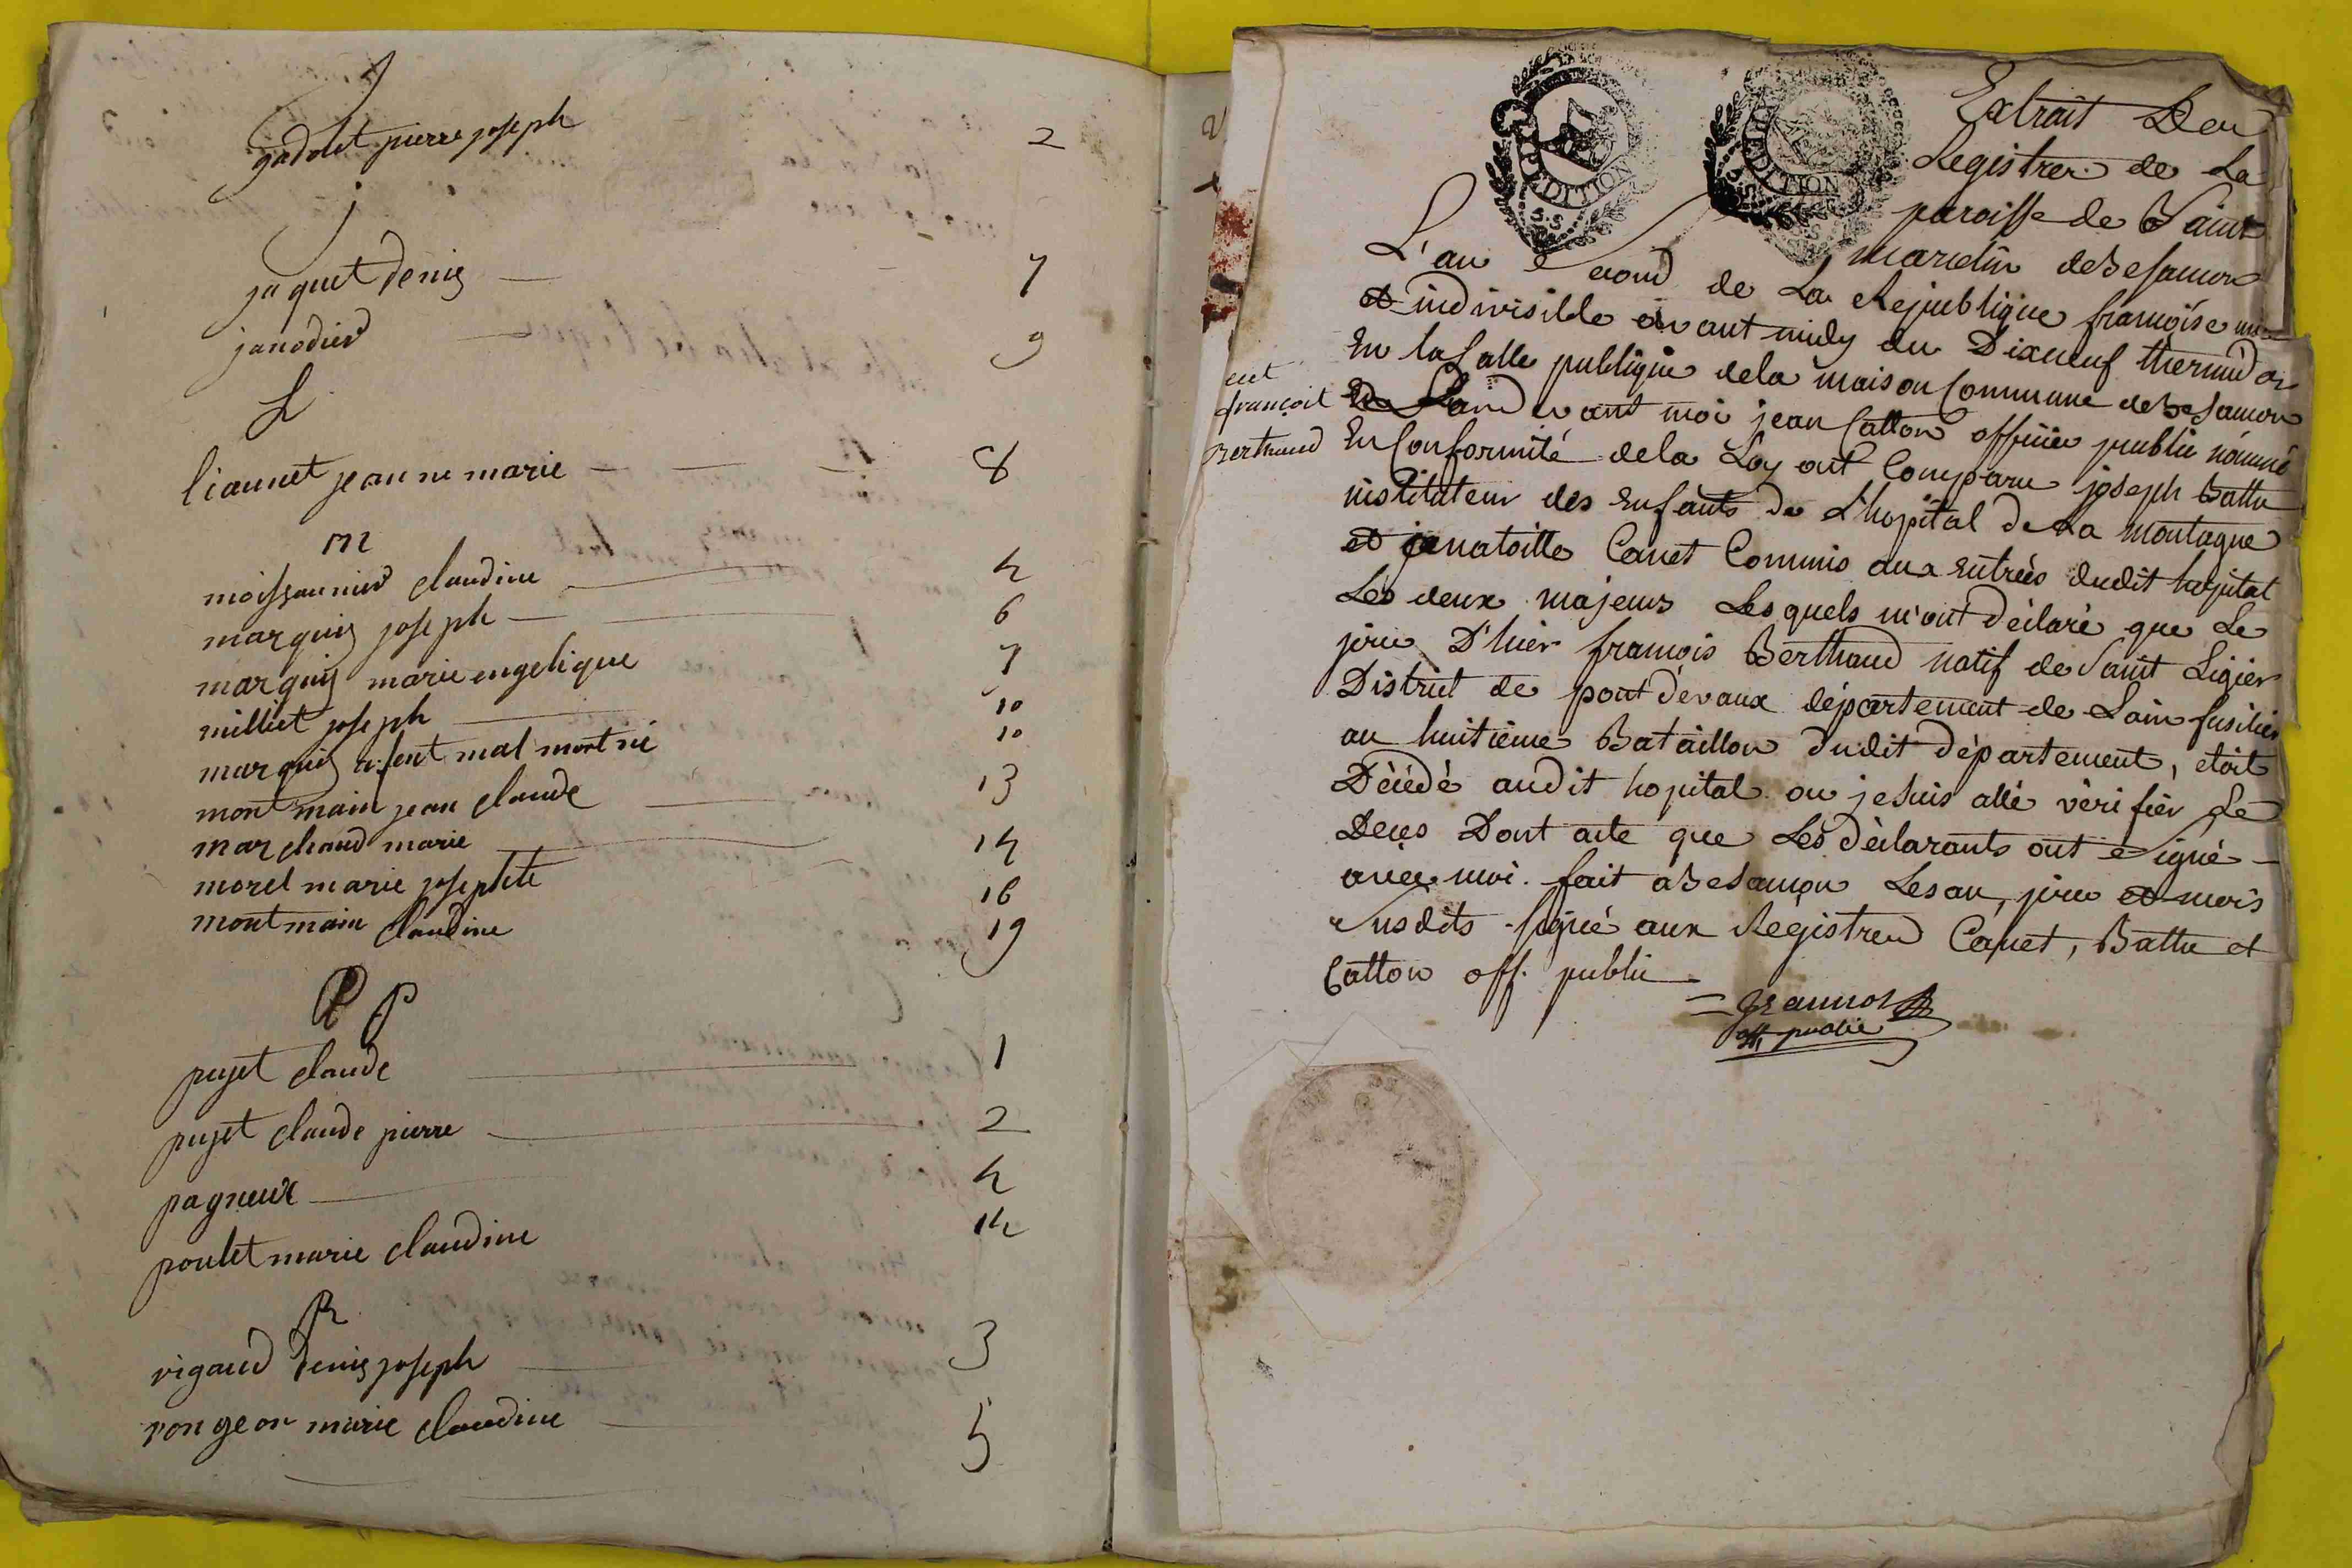 J
gadolet pierre joseph 2
j
jaquet denis 7
janodier 9
L
liannet jeanne marie 8
m
moissonnier claudine 4
marquis joseph 6
marquis marie engelique 7
milliet joseph 10
marquis enfent mal mort né 10
montmain jean claude 13
marchand marie 14
morel marie josephte 16
montmain claudine 19
P P
pujet claude 1
pujet claude pierre 2
pagneux 4
poulet marie claudine 14
R
rigaud denis joseph 3
rongeon marie claudine 5
EXPEDITION
S.S
EXPEDITION
S.S
Extrait Deu
Registreu de La
paroisse de Saint
marcelin de Besançon
L'an Second de La Republique françoise une
et indivisible avant midy du Dixneuf thermidor
En la Salle publique de la maison Commune de Besançon
pardevant moi jean Catton officier public nommé
En Conformité de la Loy ont Comparu joseph Battu
instituteur des Enfants de L'hopital de La montagne
et Canet Commis aux Entrées dudit hopital
Les deux majeurs Lesquels m'ont déclaré que Le
jour D'hier françois Berthaud natif de Saint Ligier
District de pont dévaux département de Lain fusilier
au huitième Bataillon dudit département, étoit
Décédé audit hopital ou je suis allé vérifier Le
Deces Dont acte que Les déclarants ont Signé
avec moi. fait a Besançon Les an, jour et mois
Susdits Signé aux Registreu Canet, Battu et
Catton off. public
françoit
Berthaud
= Jeannot
off. public